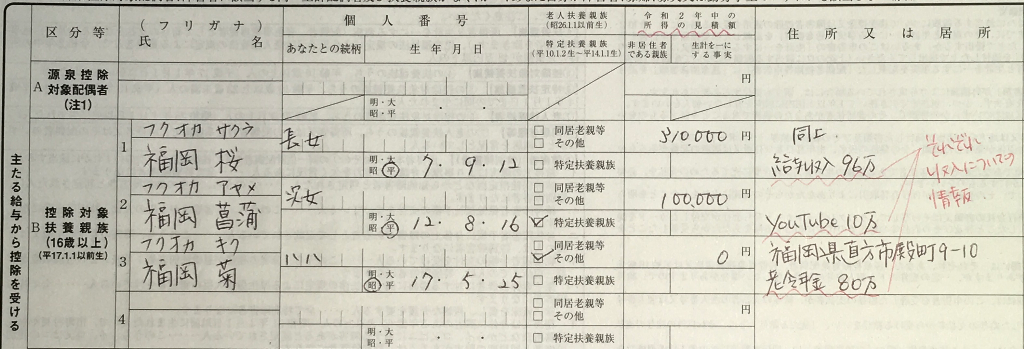 区分等
(フリガナ)
氏 名
個人番号
あなたとの続柄 生年月日
老人扶養親族
(昭26.1.1以前生)
特定扶養親族
(平10.1.2生～平14.1.1生)
令和2年中の
所得の見積額
非居住者
である親族
生計を一に
する事実
住所又は居所
主たる給与から控除を受ける
A
源泉控除
対象配偶者
(注1)
明・大
昭・平 ・ ・
円
B
控除対象
扶養親族
(16歳以上)
(平17.1.1以前生)
1
フクオカ サクラ
福岡 桜
長女
明・大
昭・平 7・9・12
□ 同居老親等
□ その他
□ 特定扶養親族
310,000 円
同上
給与収入 96万
2
フクオカ アヤメ
福岡 菖蒲
次女
明・大
昭・平 12・8・16
□ 同居老親等
□ その他
☑ 特定扶養親族
100,000 円
YouTube 10万
それぞれ
収入についての
情報
3
フクオカ キク
福岡 菊
ハハ
明・大
昭・平 17・5・25
□ 同居老親等
☑ その他
□ 特定扶養親族
0 円
福岡県直方市殿町9-10
老令年金 80万
4
明・大
昭・平 ・ ・
□ 同居老親等
□ その他
□ 特定扶養親族
円